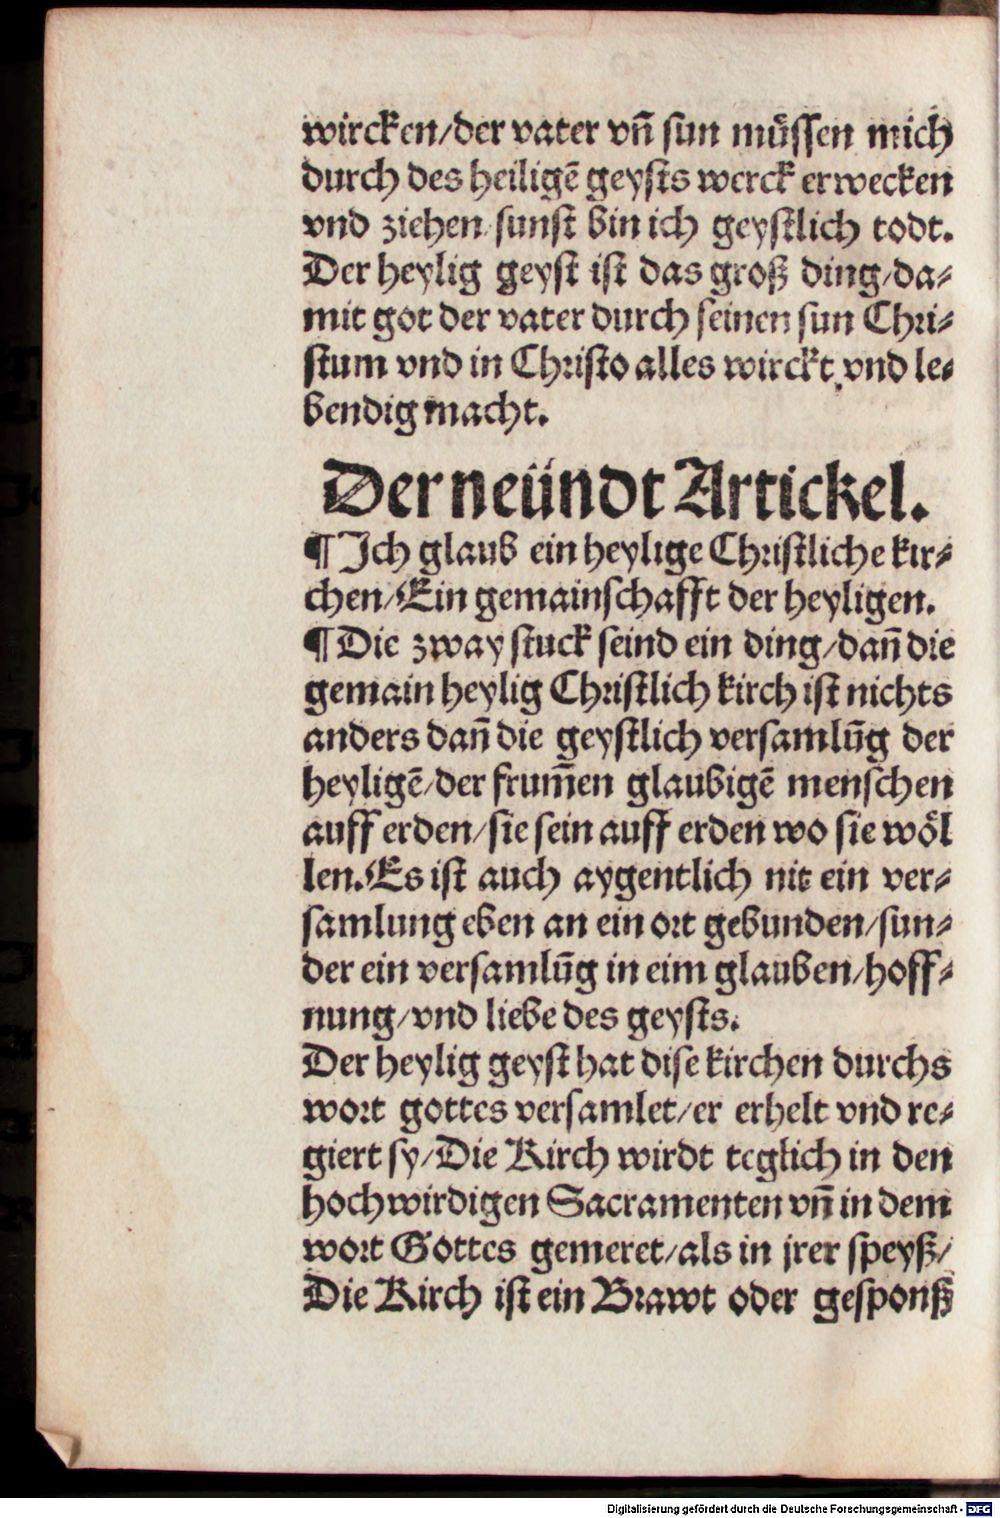 wircken/der vater vñ sun müssen mich
durch des heiligẽ geysts werck erwecken
vnd ziehen sunst bin ich geystlich todt.
Der heylig geyst ist das groß ding/da⸗
mit got der vater durch seinen sun Chri⸗
stum vnd in Christo alles wirckt vnd le⸗
bendig macht.
Der neündt Artickel.
¶ Ich glaub ein heylige Christliche kir⸗
chen/Ein gemainschafft der heyligen.
¶ Die zway stuck seind ein ding/dañ die
gemain heylig Christlich kirch ist nichts
anders dañ die geystlich versamlũg der
heyligẽ/der frum̃en glaubigẽ menschen
auff erden/sie sein auff erden wo sie wöl
len.Es ist auch aygentlich nit ein ver⸗
samlung eben an ein ort gebunden/sun⸗
der ein versamlũg in eim glauben/hoff⸗
nung/vnd liebe des geysts.
Der heylig geyst hat dise kirchen durchs
wort gottes versamlet/er erhelt vnd re⸗
giert sy/Die Kirch wirdt teglich in den
hochwirdigen Sacramenten vñ in dem
wort Gottes gemeret/als in jrer speyß/
Die Kirch ist ein Brawt oder gesponß
Digitalisierung gefördert durch die Deutsche Forschungsgemeinschaft - DFG